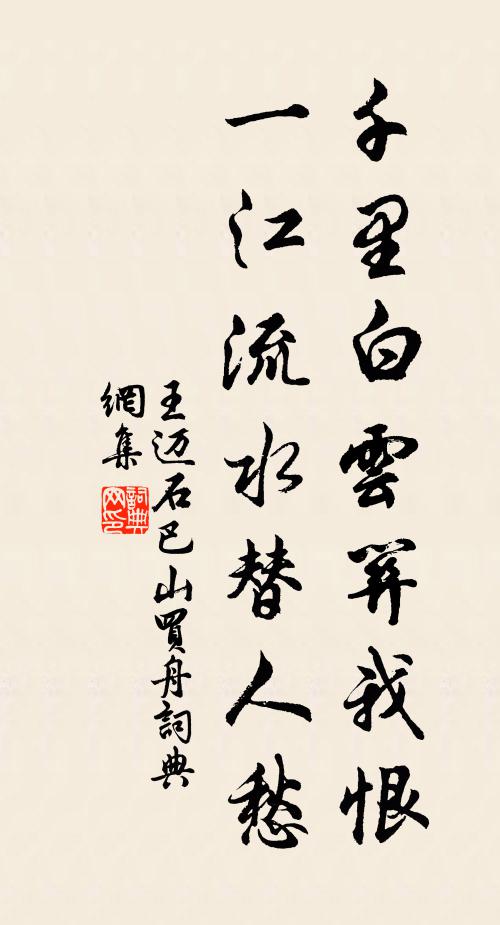 千里白雲我恨
一江流水替人愁
王迈石巴山買舟詞典
網集
詞典
网印